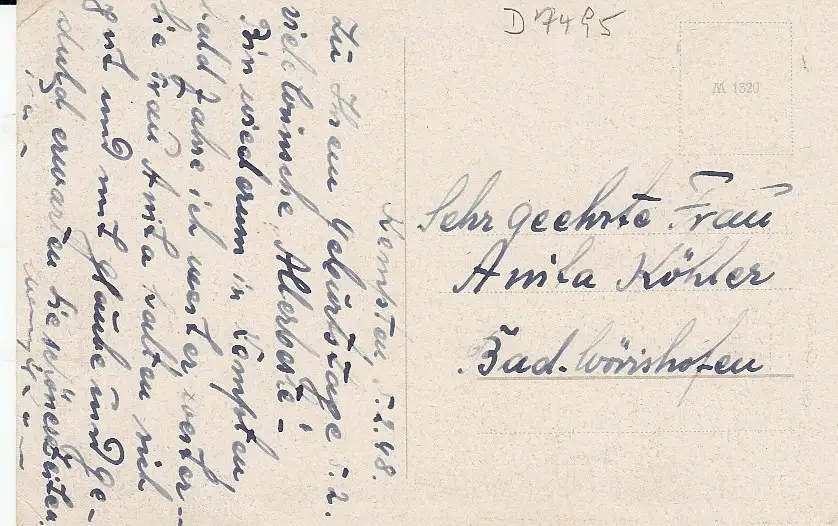 D 7495
M 1520
Kempten, 5.2.48.
Zu Ihrem Geburtstage 5.2.
viele Wünsche, Allerbeste –
Bin wiederum in Kempten,
bald fahre ich weiter
Sie Frau Anita halten sich
gut und mit Glaube und Ge-
duld erwarten Sie schönere Zeiten.
Sehr geehrte Frau
Anita Köhler
Bad-Wörishofen